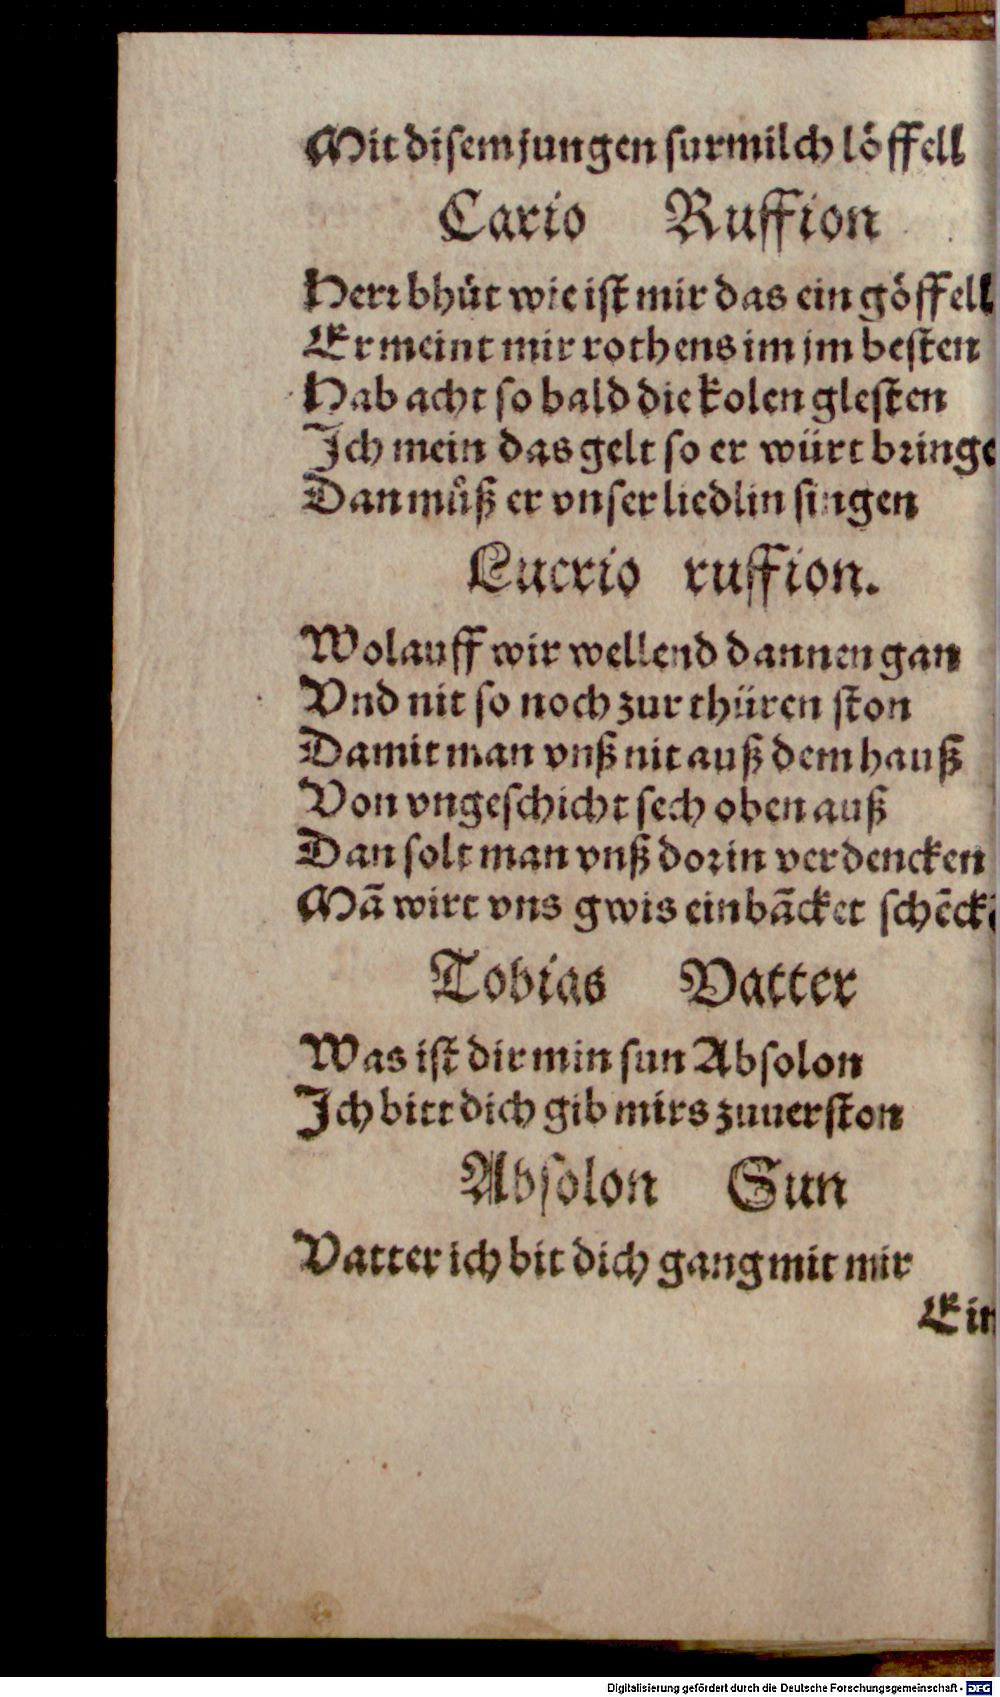 Mit disem jungen surmilch löffell
Cario Ruffion
Herr bhüt wie ist mir das ein göffell
Er meint mir rothens im jm besten
Hab acht so bald die kolen glesten
Ich mein das gelt so er würt bringe
Dan můß er vnser liedlin singen
Lucrio ruffion.
Wolauff wir wellend dannen gan
Vnd nit so noch zur thüren ston
Damit man vnß nit auß dem hauß
Von vngeschicht sech oben auß
Dan solt man vnß dorin verdencken
Mã wirt vns gwis ein bãcket schẽckẽ
Tobias Vatter
Was ist dir min sun Absolon
Ich bitt dich gib mirs zuuerston
Absolon Sun
Vatter ich bit dich gang mit mir
Ein
Digitalisierung gefördert durch die Deutsche Forschungsgemeinschaft - DFG